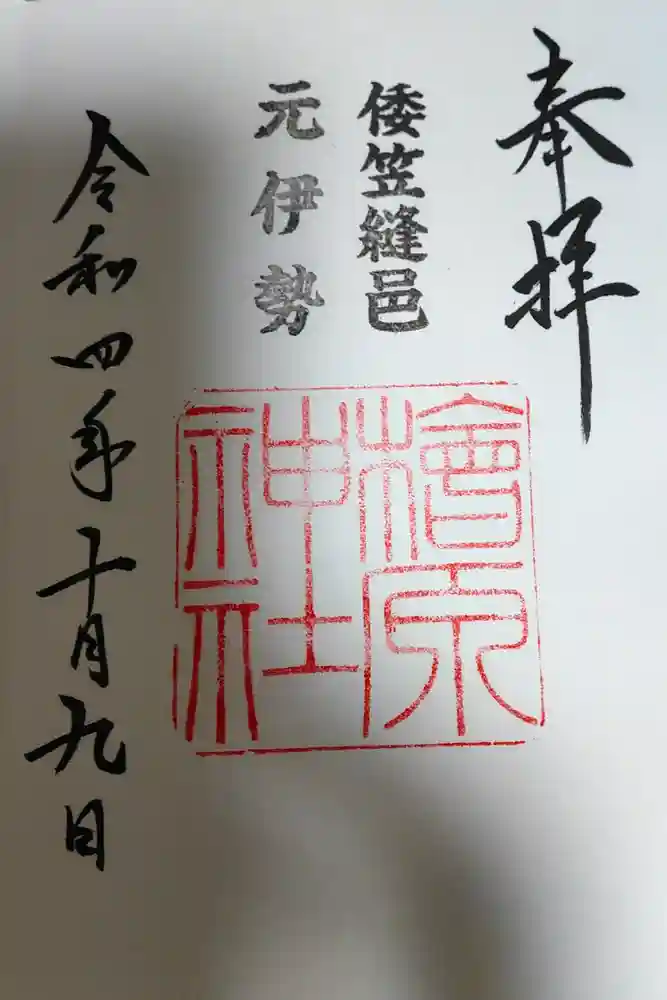 奉拝
倭笠縫邑
元伊勢
檜原
神社
令和四年十月九日